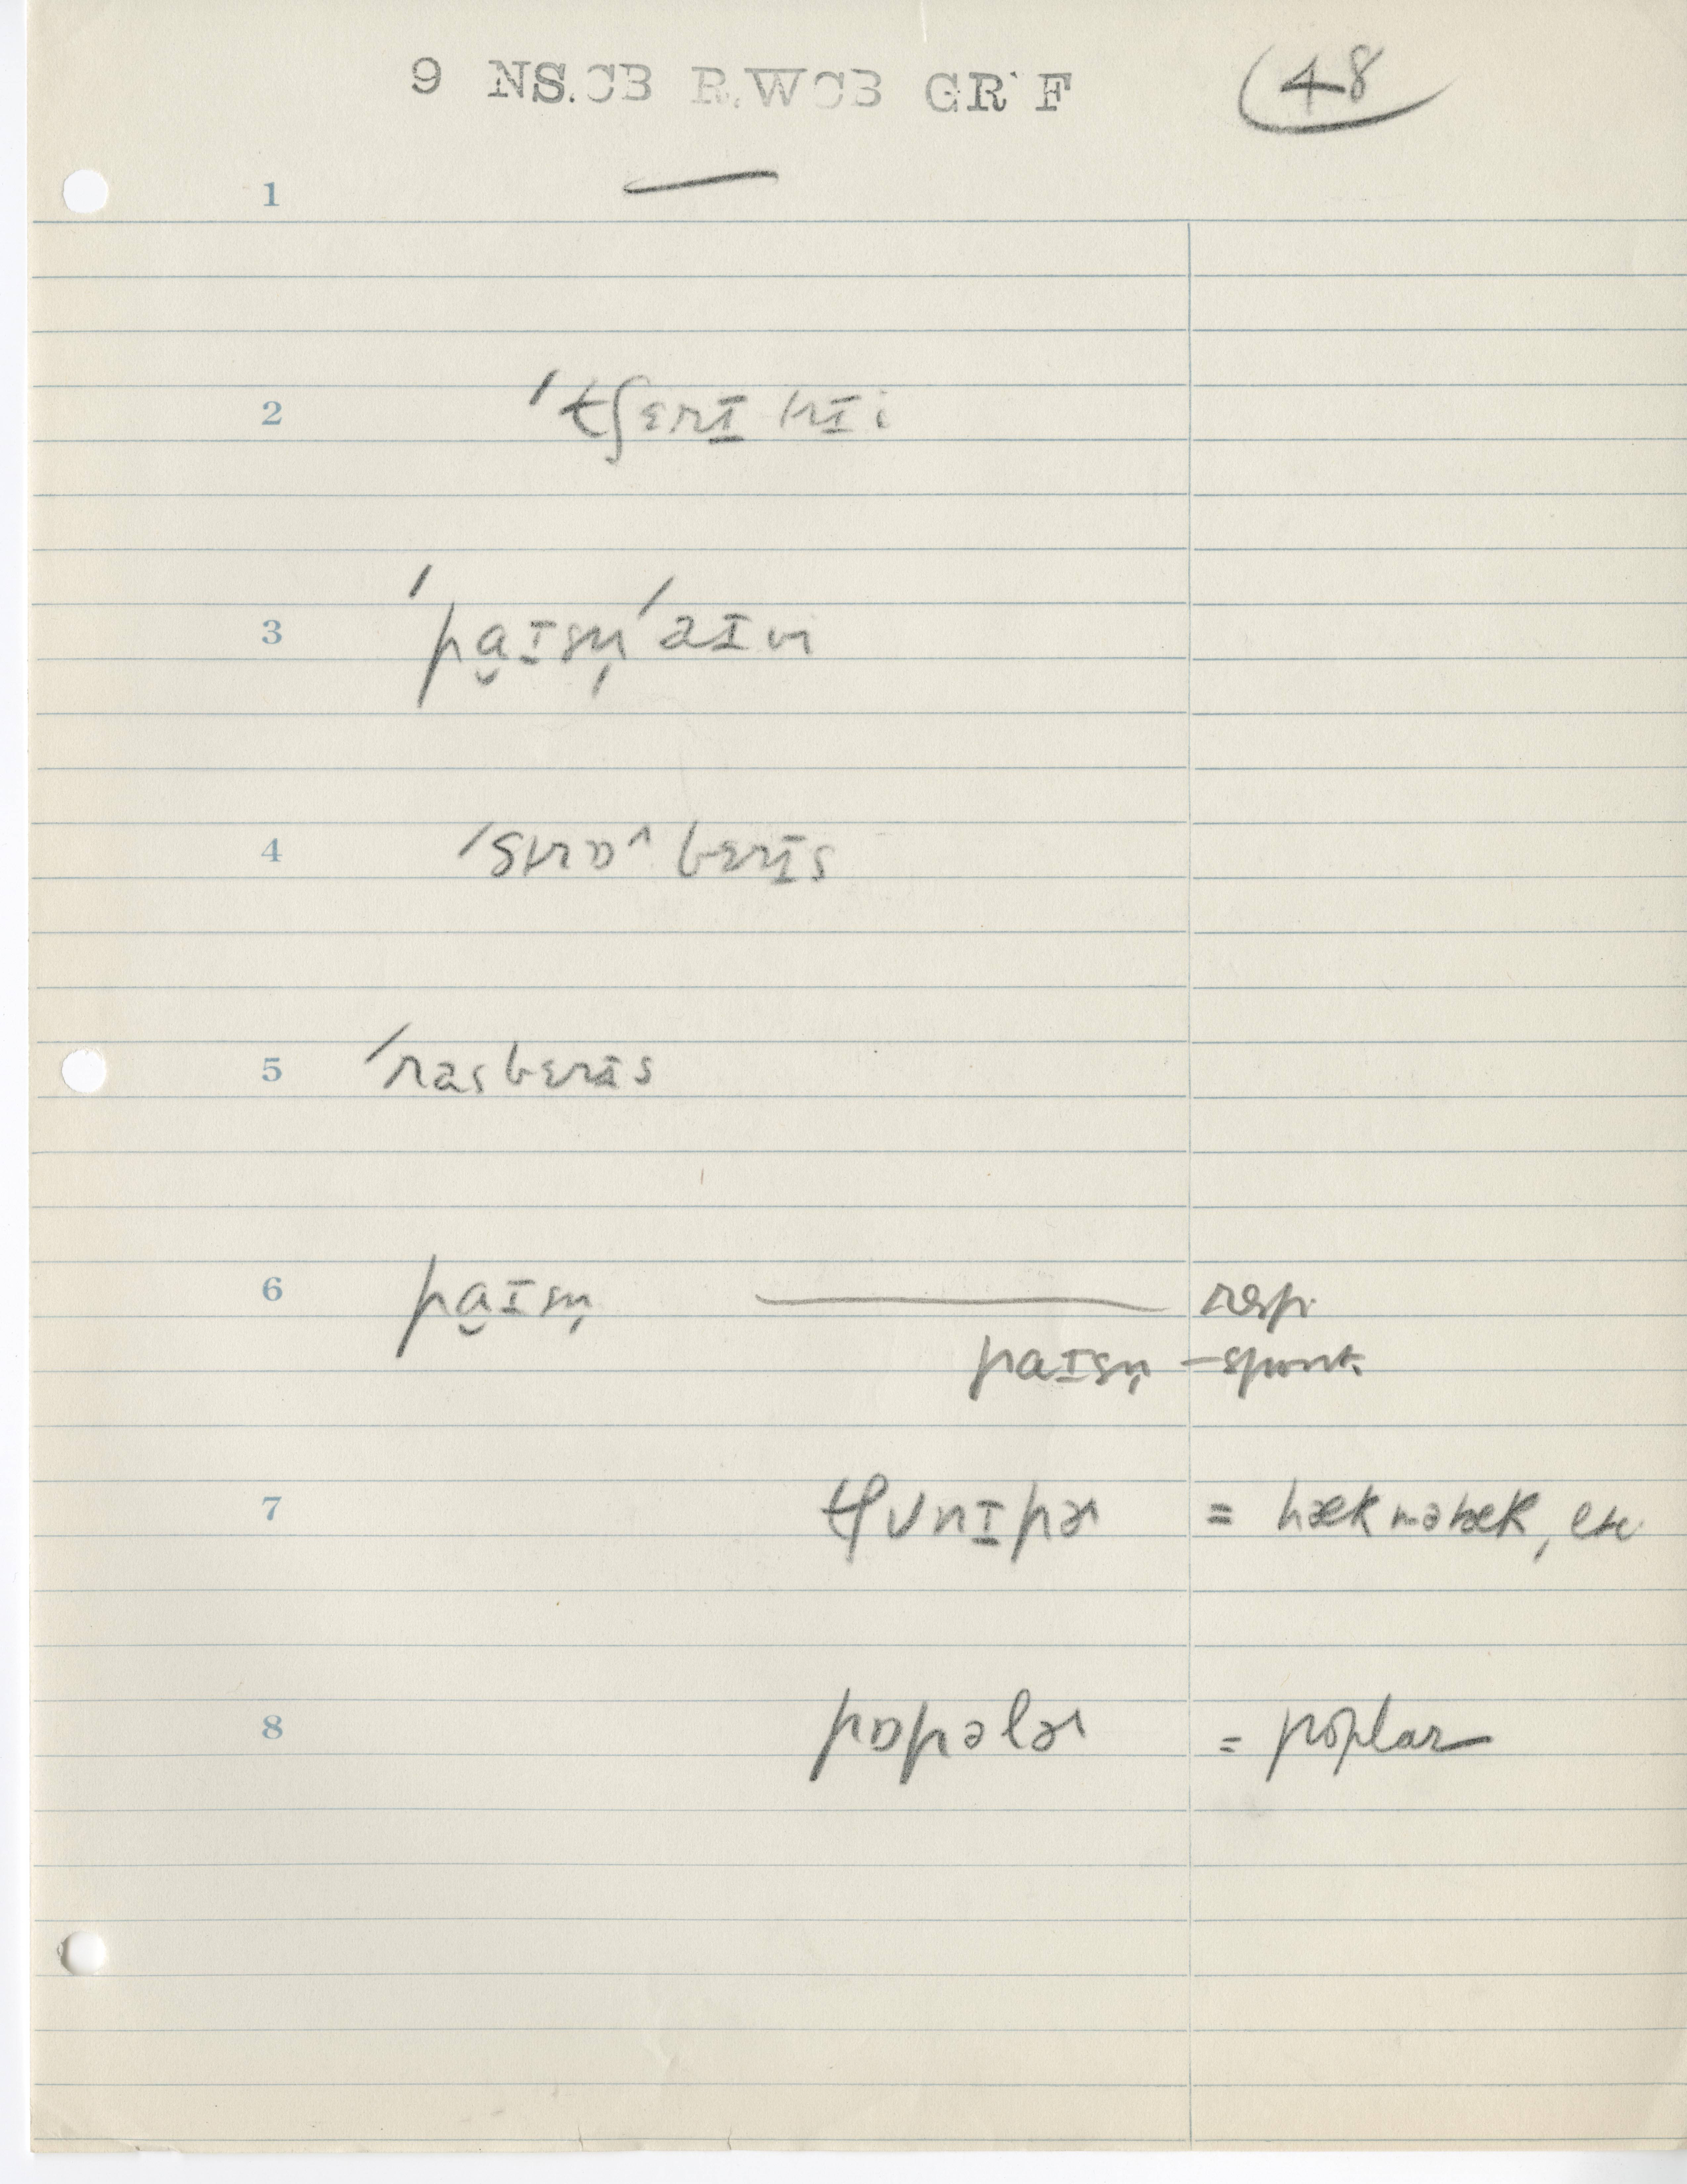 9 NS.CB R.WCB GR F 48
1 —
2 ˈtʃɛrɪ trɪi
3 ˈpa̬ɪsn̩ ˈaɪvi
4 ˈstrɒ^ bɛrɪs
5 ˈrasbɛrɪs
6 pa̬ɪsn̩ —— resp.
paɪsn̩ – spont.
7 tʃunɪpɚ = hækmətæk, etc
8 pɒpəlɚ = poplar